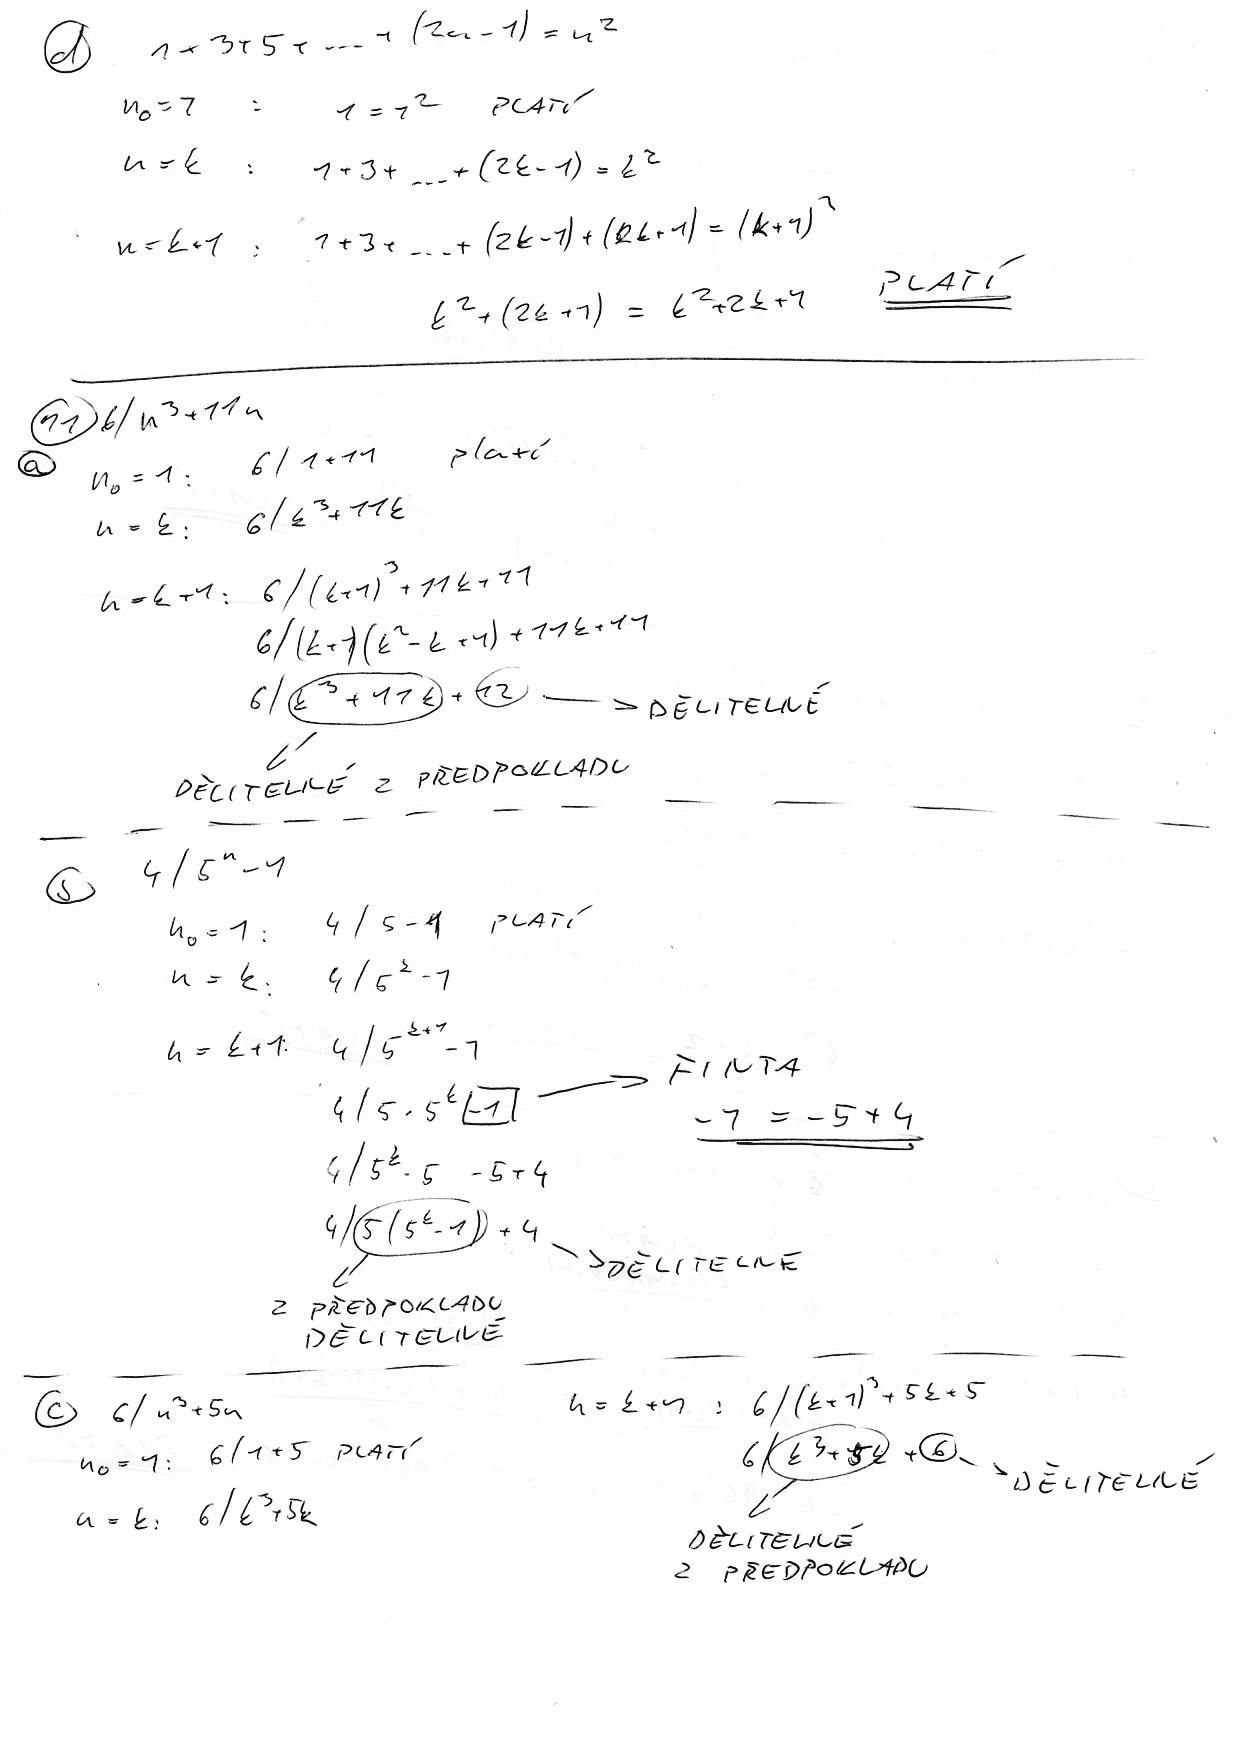 d) 1+3+5+...+(2n-1)=n²
n₀=1 : 1=1² PLATÍ
n=k : 1+3+...+(2k-1)=k²
n=k+1 : 1+3+...+(2k-1)+(2k+1)=(k+1)²
k²+(2k+1) = k²+2k+1 PLATÍ
11) 6/n³+11n
a) n₀=1: 6/1+11 platí
n=k: 6/k³+11k
n=k+1: 6/(k+1)³+11k+11
6/(k+1)(k²-k+1)+11k+11
6/k³+11k+12 → DĚLITELNÉ
DĚLITELNÉ Z PŘEDPOKLADU
b) 4/5ⁿ-1
n₀=1: 4/5-1 PLATÍ
n=k: 4/5ᵏ-1
n=k+1: 4/5ᵏ⁺¹-1
4/5·5ᵏ-1 → FINTA
-1 = -5+4
4/5ᵏ·5 -5+4
4/5(5ᵏ-1)+4 → DĚLITELNÉ
Z PŘEDPOKLADU
DĚLITELNÉ
c) 6/n³+5n
n₀=1: 6/1+5 PLATÍ
n=k: 6/k³+5k
n=k+1 : 6/(k+1)³+5k+5
6/k³+5k+6 → DĚLITELNÉ
DĚLITELNÉ
Z PŘEDPOKLADU